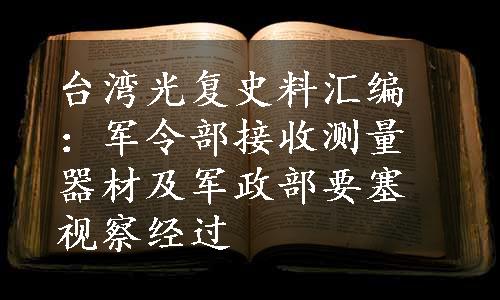 台湾光复史料汇编
：军令部接收测量
器材及军政部要塞
视察经过